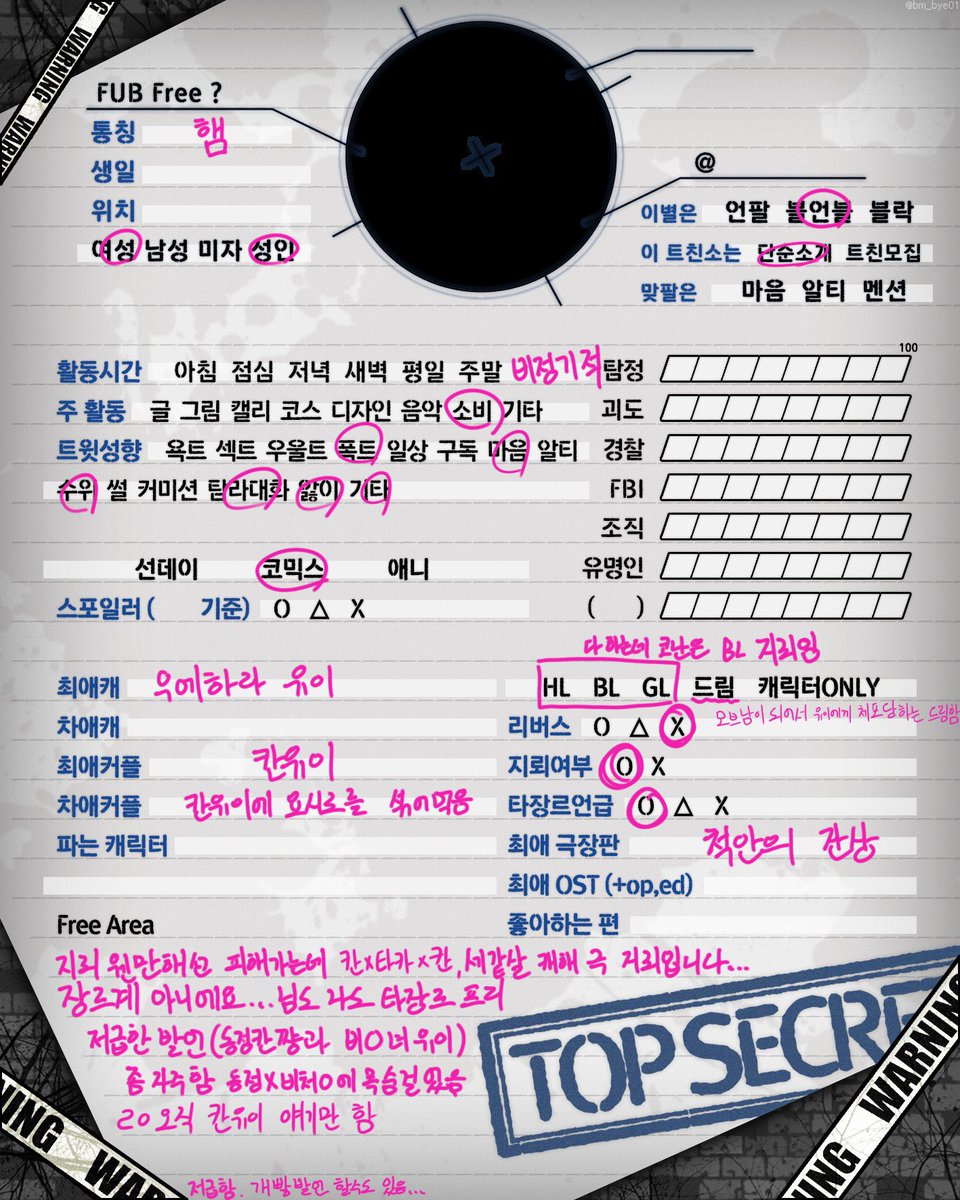 @bm_bye01
WARNING WARNING
FUB Free ?
통칭 햄
생일
위치
여성 남성 미자 성인
@
이별은 언팔 블언블 블락
이 트친소는 단순소개 트친모집
맞팔은 마음 알티 멘션
활동시간 아침 점심 저녁 새벽 평일 주말 비정기적
주 활동 글 그림 캘리 코스 디자인 음악 소비 기타
트윗성향 욕트 섹트 우울트 폭트 일상 구독 마음 알티
수위 썰 커미션 탐라대화 앓이 기타
선데이 코믹스 애니
스포일러 ( 기준) O △ X
100
탐정
괴도
경찰
FBI
조직
유명인
( )
최애캐 우에하라 유이
차애캐
최애커플 칸유이
차애커플 칸유이에 요시로를 섞어먹음
파는 캐릭터
다 하는데 코난은 BL 지뢰임
HL BL GL 드림 캐릭터ONLY
리버스 O △ X
모브남이 되어서 유이에게 체포당하는 드림함
지뢰여부 O X
타장르언급 O △ X
최애 극장판 척안의 잔상
최애 OST (+op,ed)
좋아하는 편
Free Area
지뢰 원만해선 피해가는데 칸x타카x칸, 세같살 캐해 극 지뢰입니다...
장르계 아니에요... 님도 나도 타장르 프리
저급한 발언(동정칸짱과 비O녀유이)
좀 자주함 동정X비처O에 목숨걸었음
20 오직 칸유이 얘기만 함
저급함. 개빻발언 할수도 있음...
TOP SECRE
WARNING
NING WAR
NING